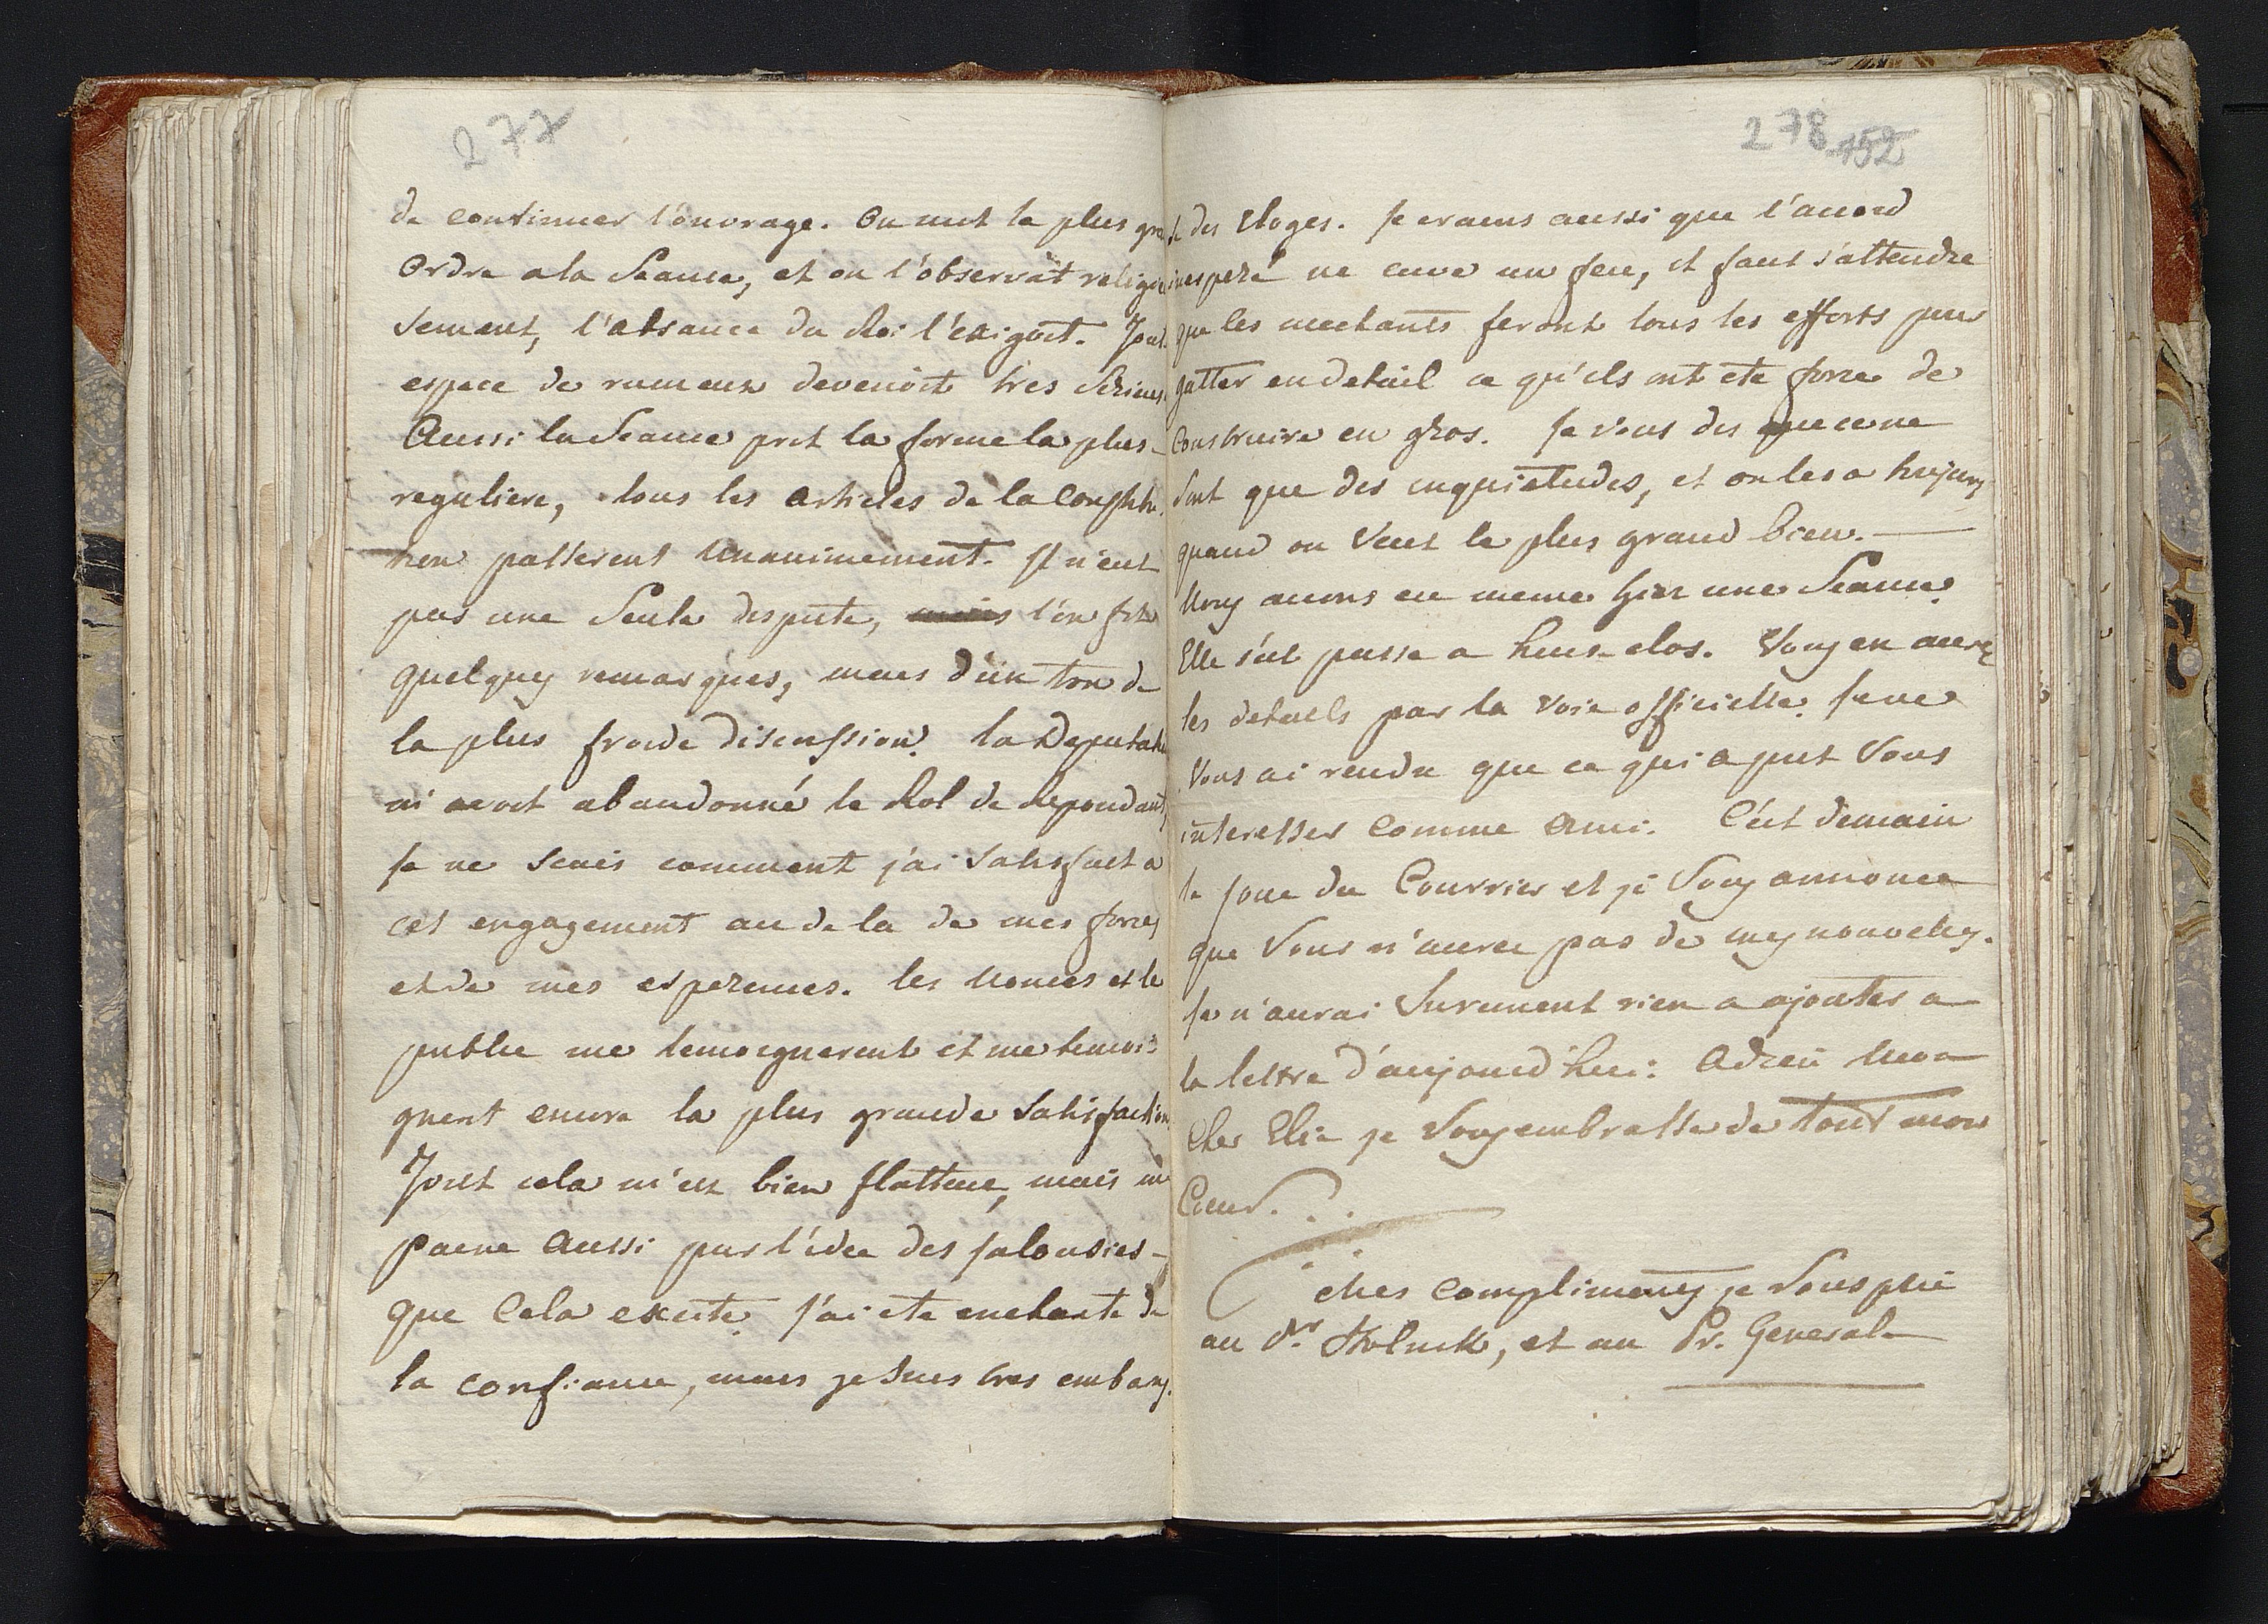 277
de continuer l'ouvrage. On mit le plus gra
Ordre a la Seance, et on l'observat religieu
sement, l'absance du Roi l'exigoit. Tout
espece de rumeur devenoit tres Serieus
Aussi la Seance prit la forme la plus
reguliere, tous les articles de la Constitu
tion passerent Unanimement. Il n'eut
pas une Seule dispute, l'on fit
quelques remarques, mais d'un ton de
la plus froide discussion. la Deputation
m'avoit abandonné le Rol de Repondant,
Je ne scais comment j'ai satisfait a
cet engagement au de la de mes forces
et de mes esperences. les Nonces et le
public me temoignerent et me temoi
gnent encore la plus grande satisfaction
Tout cela m'est bien flatteur, mais me
paene Aussi par l'idee des jalousies
que Cela excite. J'ai ete enchante de
la confiance, mais je suis tres embaras
278 152
se des Eloges. Je crains aussi que l'acord
inesperé ne cuve un feu, il faut s'attendre
que les mechants feront tous les efforts pour
gatter en detail ce qu'ils ont ete forcé de
Construire en gros. Je vous dis que ce ne
sont que des inquietudes, et on les a toujours
quand on Veut le plus grand bien.
Nous avons eu meme hier une Seance.
Elle s'est passe a huis clos. Vous en aurez
les details par la voie officielle. Je ne
Vous ai rendu que ce qui a put Vous
interesser Comme Ami. C'est demain
le jour du Courrier et je Vous annonce
que Vous n'aurez pas de mes nouvelles.
Je n'aurai Surement rien a ajouter a
la lettre d'aujourd'hui. Adieu Mon
Cher Elie je Vous embrasse de tout mon
Coeur. . .
Mes Complimens je Vous prie
au Dr Stolnik, et au Pr. General